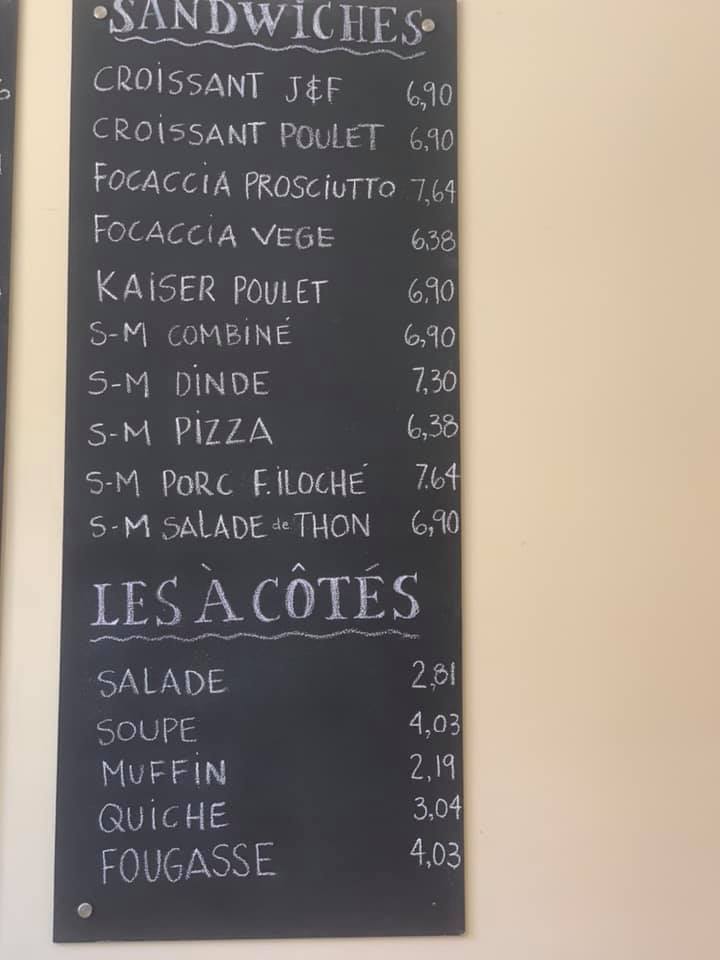 SANDWICHES
CROISSANT J&F 6,90
CROISSANT POULET 6,90
FOCACCIA PROSCIUTTO 7,64
FOCACCIA VEGE 6,38
KAISER POULET 6,90
S-M COMBINÉ 6,90
S-M DINDE 7,30
S-M PIZZA 6,38
S-M PORC F.ILOCHÉ 7.64
S-M SALADE de THON 6,90
LES À CÔTÉS
SALADE 2,81
SOUPE 4,03
MUFFIN 2,19
QUICHE 3,04
FOUGASSE 4,03